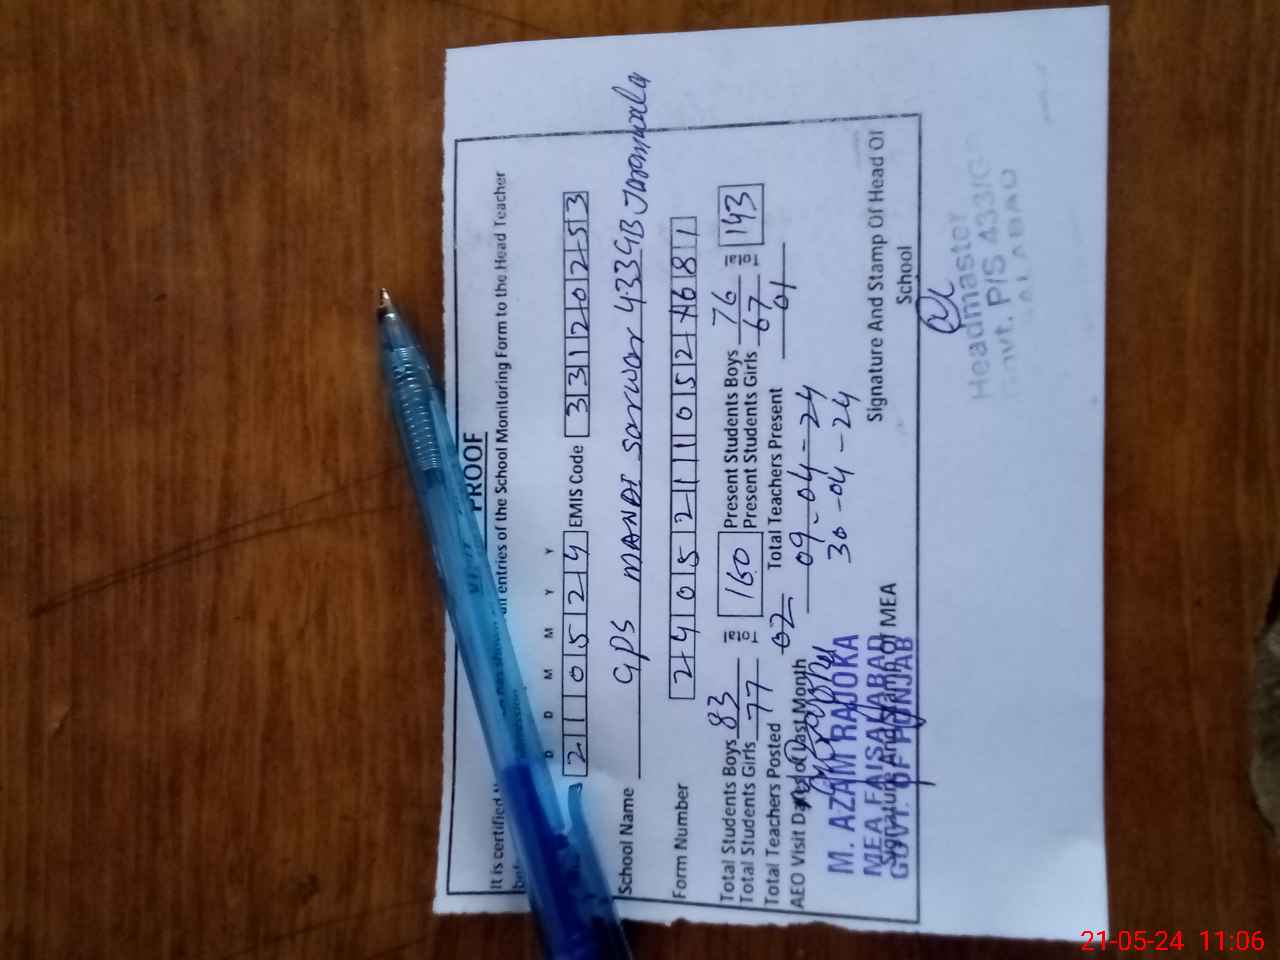 PROOF
It is certified
all entries of the School Monitoring Form to the Head Teacher
D D M M Y Y
210524 EMIS Code 33120253
School Name GPS MANDI Sarwar 433GB Jaranwala
Form Number 240521110521681
Total Students Boys 83
Total Students Girls 77
160
Present Students Boys 76
Present Students Girls 67
143
Total Teachers Posted 02 Total Teachers Present 01
AEO Visit Dates of Last Month 09-04-24
30-04-24
M. AZAM RAJOKA
MEA FAISALABAD
GOVT. OF PUNJAB
Signature And Stamp Of MEA
Signature And Stamp Of Head Of
School
Headmaster
Govt. P/S 433/G
21-05-24 11:06